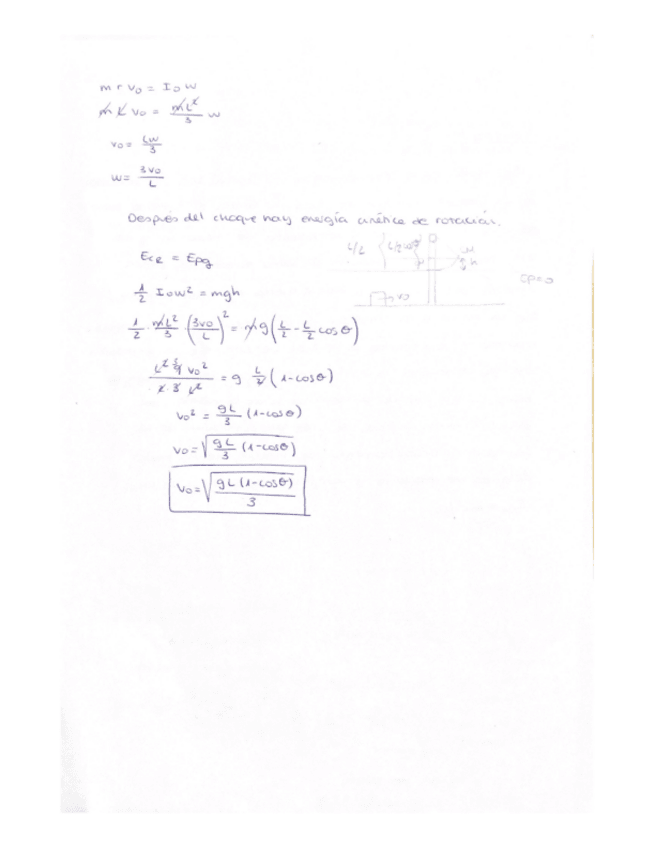 m r v₀ = I₀ w
m L v₀ = mL²/3 w
v₀ = Lw/3
w = 3v₀/L
Después del choque hay energía cinética de rotación.
L/2 L/2 cosθ
EcR = Epg
h
Ep=0
1/2 I₀w² = mgh
v₀
1/2 · mL²/3 · (3v₀/L)² = mg(L/2 - L/2 cosθ)
L² 9 v₀²/2 3 L² = g L/2 (1-cosθ)
v₀² = gL/3 (1-cosθ)
v₀ = √(gL/3 (1-cosθ))
v₀ = √(gL(1-cosθ)/3)